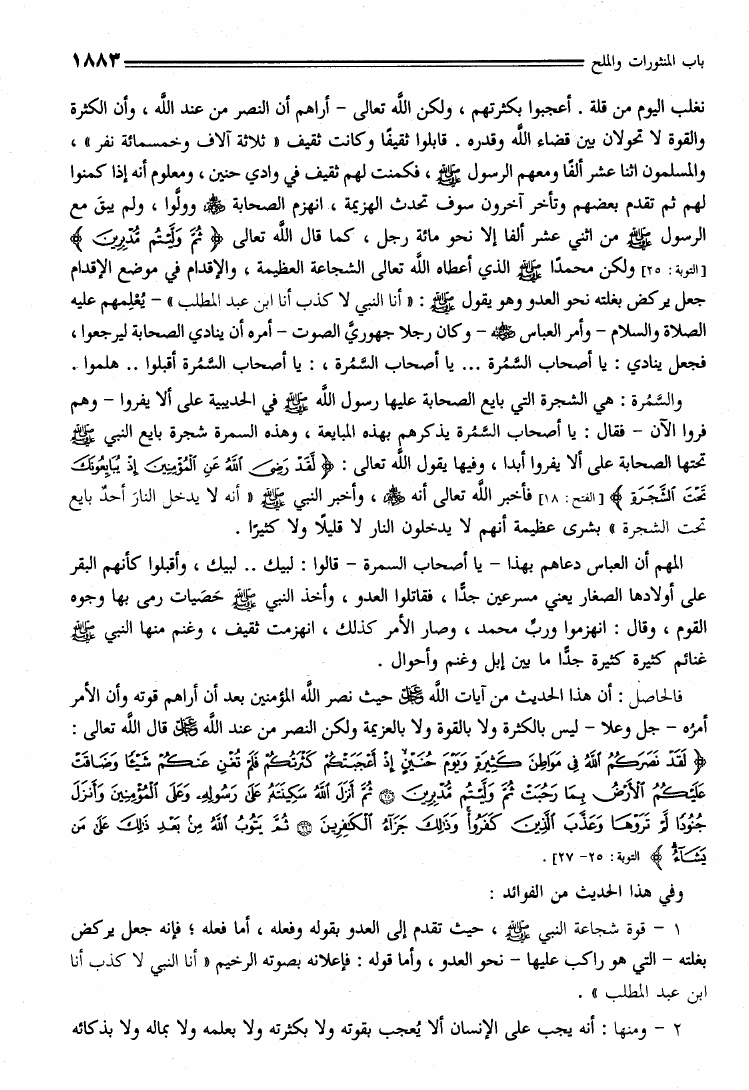 باب المنثورات والملح ١٨٨٣
نغلب اليوم من قلة . أعجبوا بكثرتهم ، ولكن اللَّه تعالى - أراهم أن النصر من عند اللَّه ، وأن الكثرة
والقوة لا تحولان بين قضاء اللَّه وقدره . قابلوا ثقيفًا وكانت ثقيف « ثلاثة آلاف وخمسمائة نفر » ،
والمسلمون اثنا عشر ألفًا ومعهم الرسول ﷺ ، فكمنت لهم ثقيف في وادي حنين ، ومعلوم أنه إذا كمنوا
لهم ثم تقدم بعضهم وتأخر آخرون سوف تحدث الهزيمة ، انهزم الصحابة ﷺ وولَّوا ، ولم يبقَ مع
الرسول ﷺ من اثني عشر ألفا إلا نحو مائة رجل ، كما قال اللَّه تعالى ﴿ ثُمَّ وَلَّيْتُم مُّدْبِرِينَ ﴾
[التوبة: ٢٥] ولكن محمدًا ﷺ الذي أعطاه اللَّه تعالى الشجاعة العظيمة ، والإقدام في موضع الإقدام
جعل يركض بغلته نحو العدو وهو يقول ﷺ : « أنا النبي لا كذب أنا ابن عبد المطلب » - يُعْلِمهم عليه
الصلاة والسلام - وأمر العباس رضي الله عنه - وكان رجلا جهوريَّ الصوت - أمره أن ينادي الصحابة ليرجعوا ،
فجعل ينادي : يا أصحاب السَّمُرة ... يا أصحاب السَّمُرة ، : يا أصحاب السَّمُرة أقبلوا .. هلموا .
والسَّمُرة : هي الشجرة التي بايع الصحابة عليها رسول اللَّه ﷺ في الحديبية على ألا يفروا - وهم
فروا الآن - فقال : يا أصحاب السَّمُرة يذكرهم بهذه المبايعة ، وهذه السمرة شجرة بايع النبي ﷺ
تحتها الصحابة على ألا يفروا أبدا ، وفيها يقول اللَّه تعالى : ﴿ لَّقَدْ رَضِىَ ٱللَّهُ عَنِ ٱلْمُؤْمِنِينَ إِذْ يُبَايِعُونَكَ
تَحْتَ ٱلشَّجَرَةِ ﴾ [الفتح: ١٨] فأخبر اللَّه تعالى أنه رضي الله عنه ، وأخبر النبي ﷺ « أنه لا يدخل النارَ أحدٌ بايع
تحت الشجرة » بشرى عظيمة أنهم لا يدخلون النار لا قليلًا ولا كثيرًا .
المهم أن العباس دعاهم بهذا - يا أصحاب السمرة - قالوا : لبيك .. لبيك ، وأقبلوا كأنهم البقر
على أولادها الصغار يعني مسرعين جدًّا ، فقاتلوا العدو ، وأخذ النبي ﷺ حَصَيات رمى بها وجوه
القوم ، وقال : انهزموا وربِّ محمد ، وصار الأمر كذلك ، انهزمت ثقيف ، وغنم منها النبي ﷺ
غنائم كثيرة كثيرة جدًّا ما بين إبل وغنم وأحوال .
فالحاصل : أن هذا الحديث من آيات اللَّه عز وجل حيث نصر اللَّه المؤمنين بعد أن أراهم قوته وأن الأمر
أمرُه - جل وعلا - ليس بالكثرة ولا بالقوة ولا بالعزيمة ولكن النصر من عند اللَّه عز وجل قال اللَّه تعالى :
﴿ لَقَدْ نَصَرَكُمُ ٱللَّهُ فِى مَوَاطِنَ كَثِيرَةٍ وَيَوْمَ حُنَيْنٍ إِذْ أَعْجَبَتْكُمْ كَثْرَتُكُمْ فَلَمْ تُغْنِ عَنكُمْ شَيْئًا وَضَاقَتْ
عَلَيْكُمُ ٱلْأَرْضُ بِمَا رَحُبَتْ ثُمَّ وَلَّيْتُم مُّدْبِرِينَ ۝٢٥ ثُمَّ أَنزَلَ ٱللَّهُ سَكِينَتَهُۥ عَلَىٰ رَسُولِهِۦ وَعَلَى ٱلْمُؤْمِنِينَ وَأَنزَلَ
جُنُودًا لَّمْ تَرَوْهَا وَعَذَّبَ ٱلَّذِينَ كَفَرُوا۟ وَذَٰلِكَ جَزَآءُ ٱلْكَٰفِرِينَ ۝٢٦ ثُمَّ يَتُوبُ ٱللَّهُ مِنۢ بَعْدِ ذَٰلِكَ عَلَىٰ مَن
يَشَآءُ ﴾ التوبة: ٢٥- ٢٧] .
وفي هذا الحديث من الفوائد :
١ - قوة شجاعة النبي ﷺ ، حيث تقدم إلى العدو بقوله وفعله ، أما فعله ؛ فإنه جعل يركض
بغلته - التي هو راكب عليها - نحو العدو ، وأما قوله : فإعلانه بصوته الرخيم « أنا النبي لا كذب أنا
ابن عبد المطلب » .
٢ - ومنها : أنه يجب على الإنسان ألا يُعجب بقوته ولا بكثرته ولا بعلمه ولا بماله ولا بذكائه